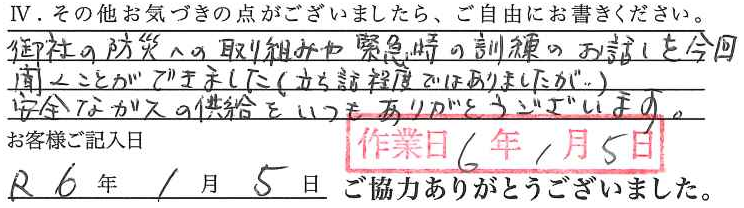 Ⅳ．その他お気づきの点がございましたら、ご自由にお書きください。
御社の防災への取り組みや緊急時の訓練のお話しを今回
聞くことができました(立ち話程度ではありましたが…)
安全なガスの供給をいつもありがとうございます。
お客様ご記入日
作業日 6年1月5日
R6年1月5日 ご協力ありがとうございました。